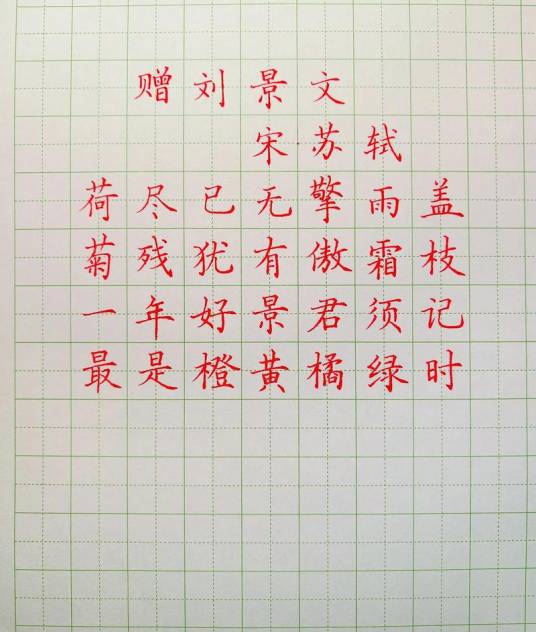 赠刘景文
宋苏轼
荷尽已无擎雨盖
菊残犹有傲霜枝
一年好景君须记
最是橙黄橘绿时